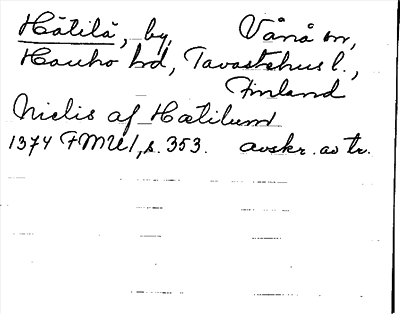 Hätilä, by, Vånå sn,
Hauho hd, Tavastehus l.,
Finland
Niclis af Hætilum
1374 FMU I, s. 353. avskr. av tr.